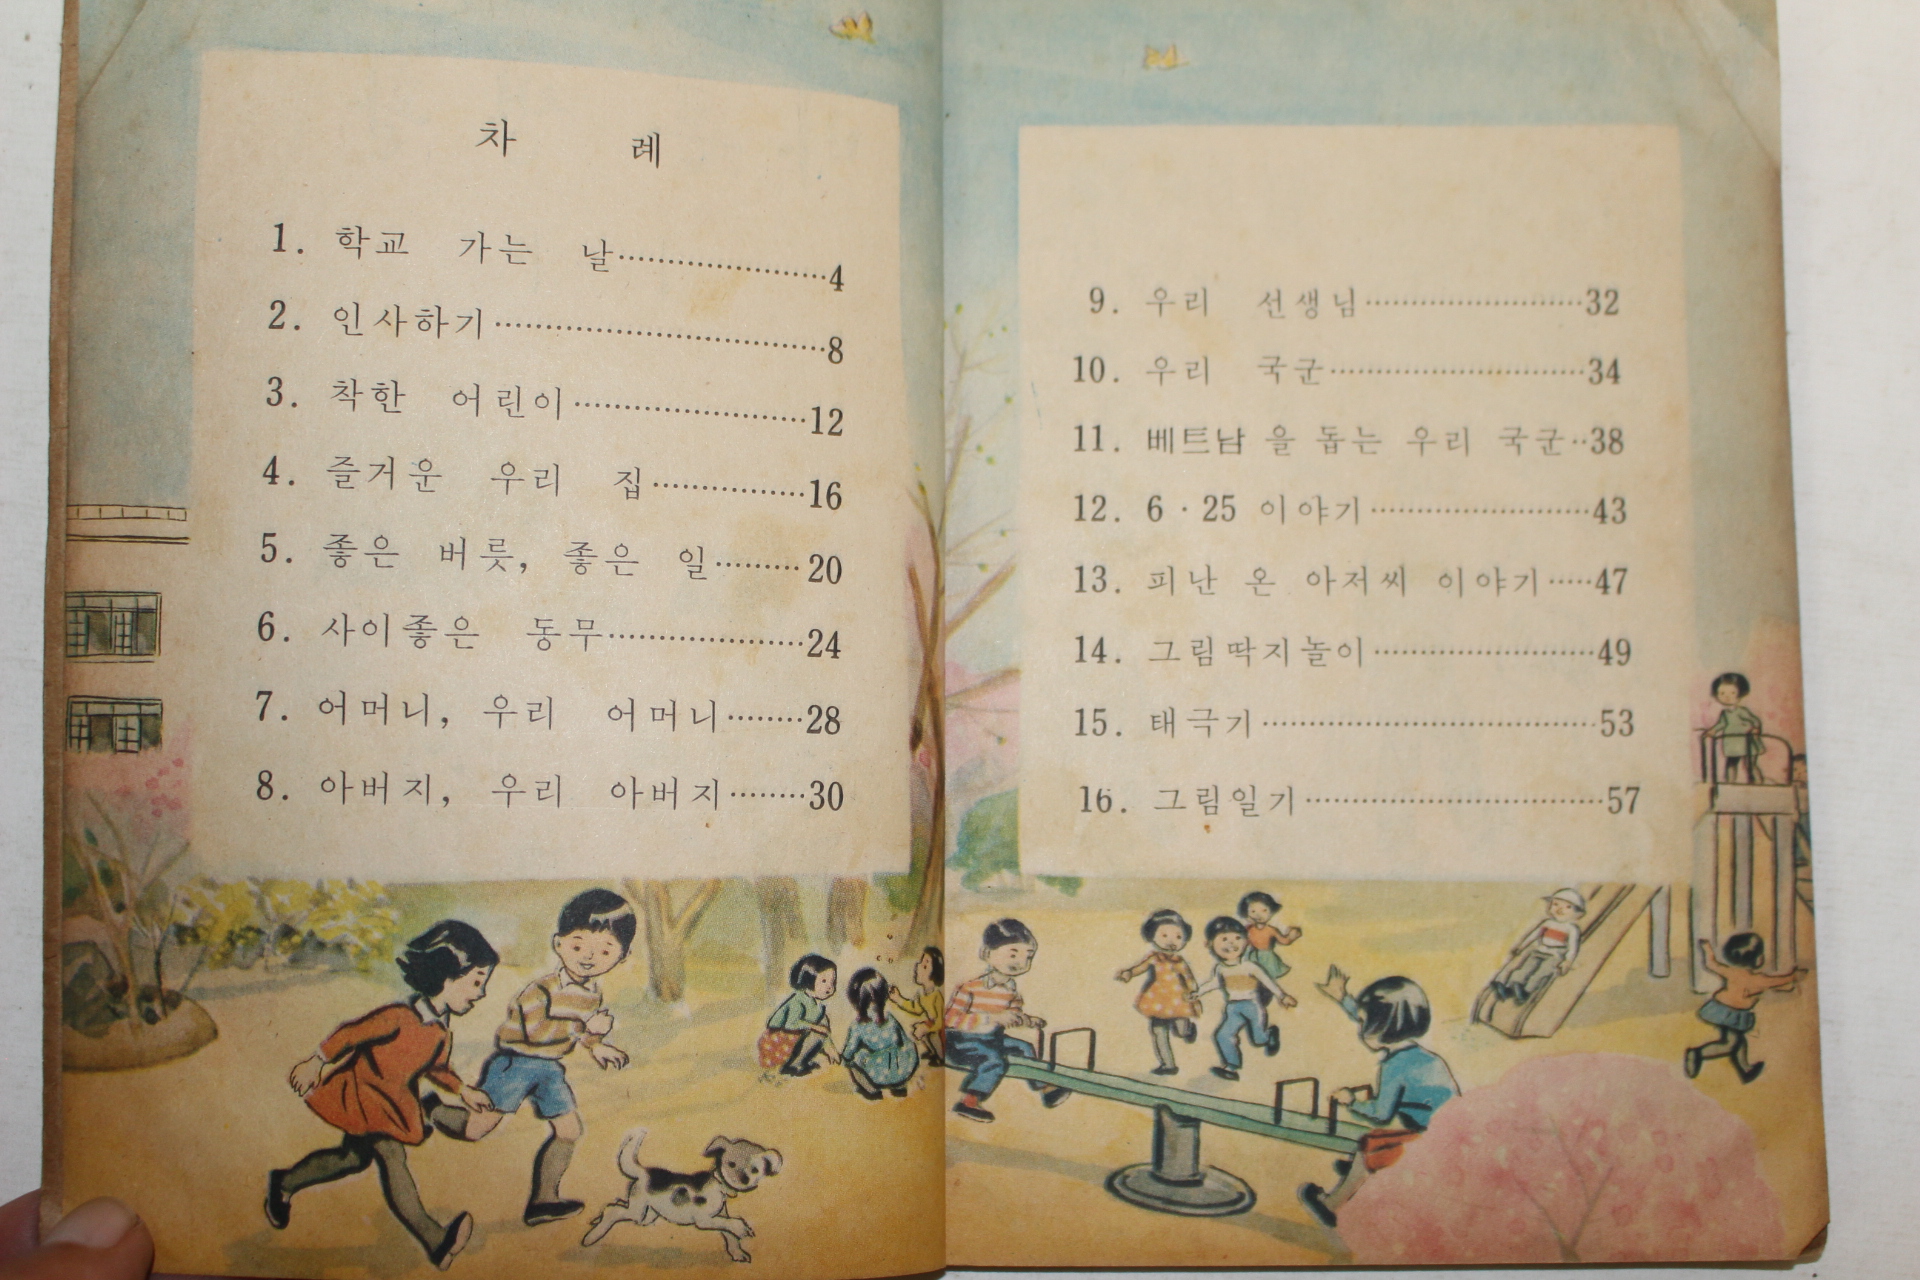 차 례
1. 학교 가는 날·····················4
2. 인사하기·································8
3. 착한 어린이·······················12
4. 즐거운 우리 집···············16
5. 좋은 버릇, 좋은 일·········20
6. 사이좋은 동무···················24
7. 어머니, 우리 어머니········28
8. 아버지, 우리 아버지········30
9. 우리 선생님······················32
10. 우리 국군·························34
11. 베트남 을 돕는 우리 국군··38
12. 6·25 이야기······················43
13. 피난 온 아저씨 이야기·····47
14. 그림딱지놀이······················49
15. 태극기·································53
16. 그림일기······························57